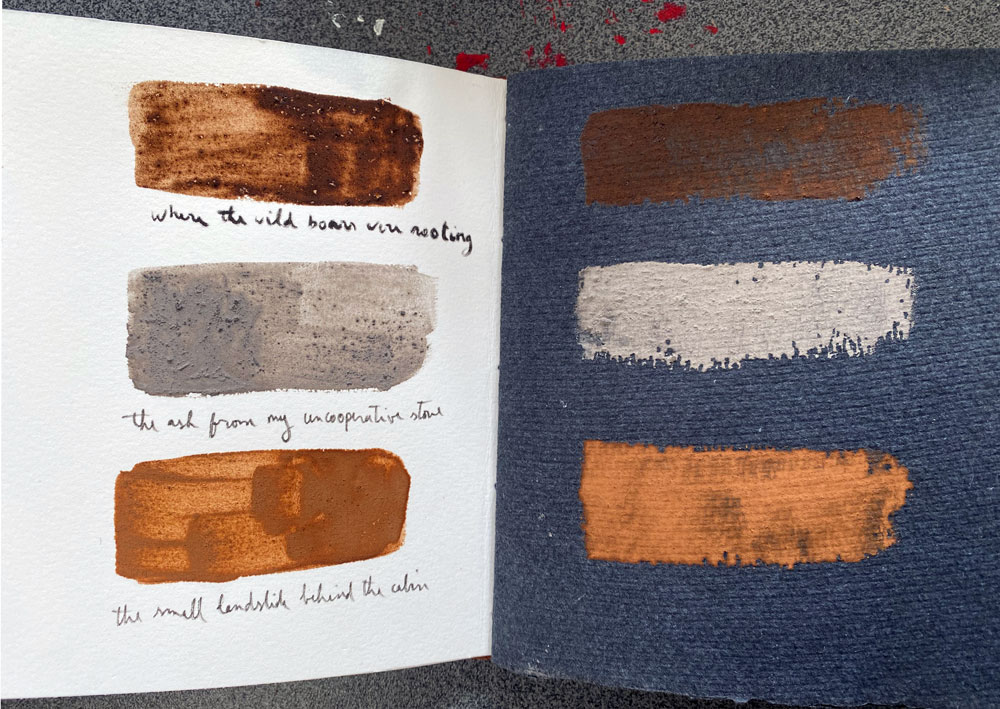 where the wild boars were rooting
the ash from my uncooperative stove
the small landslide behind the cabin